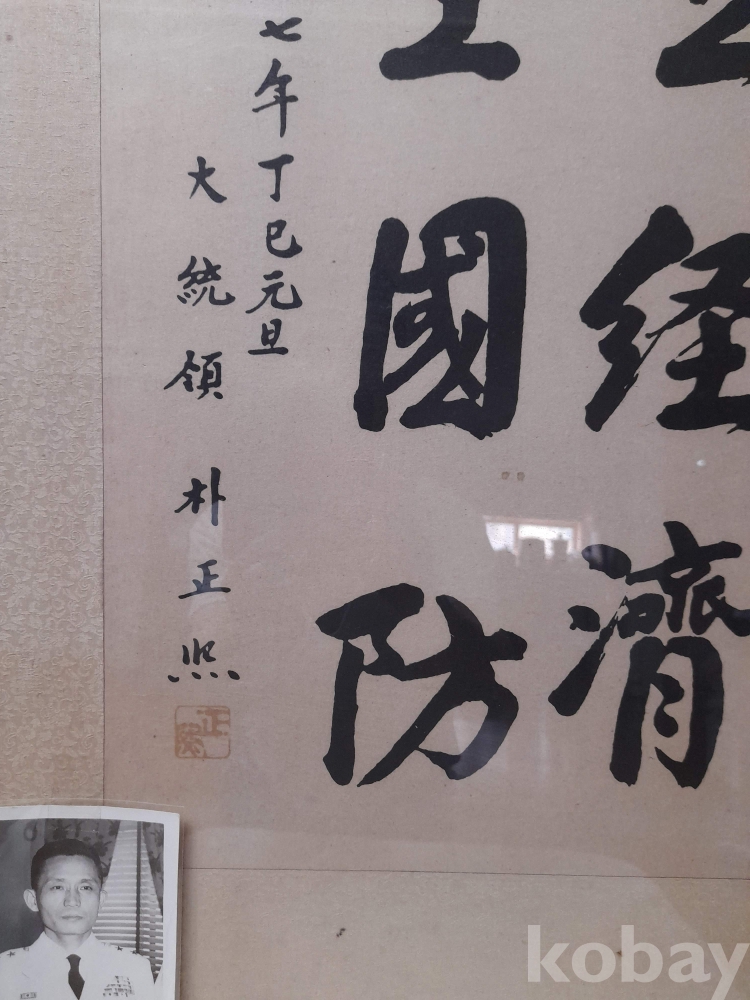 経濟
國防
七年丁巳元旦
大統領 朴正熙
kobay